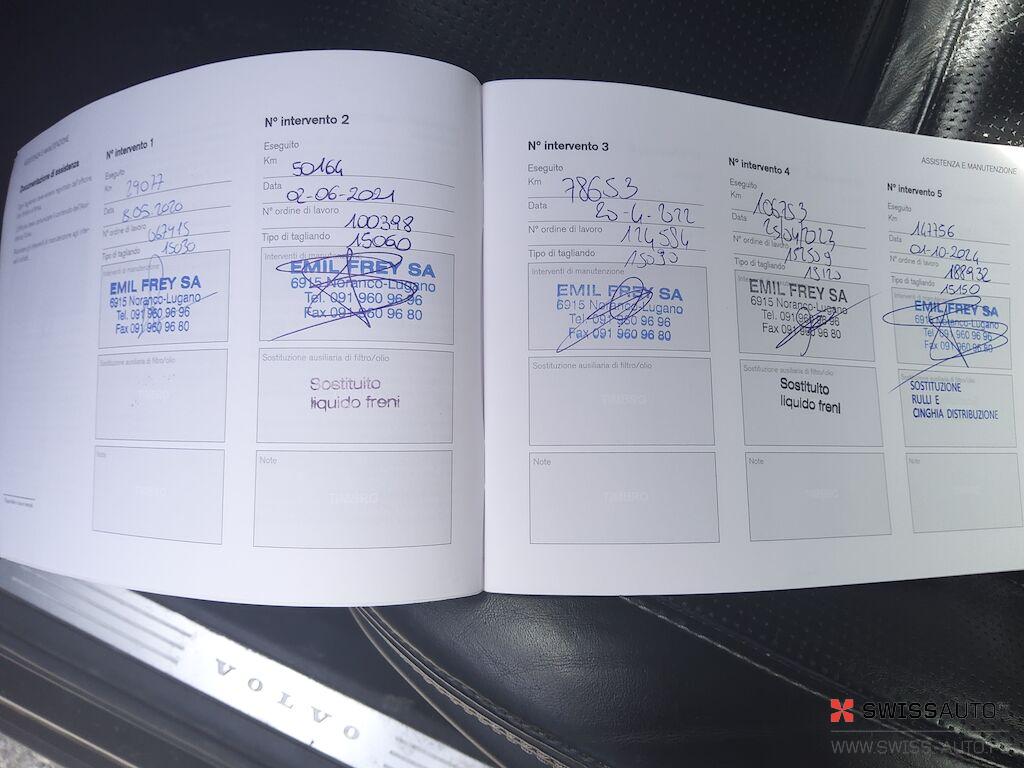 ASSISTENZA E MANUTENZIONE
Documentazione di assistenza
Nº intervento 1
Eseguito
Km 29077
Data 8.05.2020
N° ordine di lavoro
Tipo di tagliando 15030
Interventi di manutenzione
EMIL FREY SA
6915 Noranco-Lugano
Tel. 091 960 96 96
Fax 091 960 96 80
Sostituzione ausiliaria di filtro/olio
TIMBRO
Note
Nº intervento 2
Eseguito
Km 50164
Data 02-06-2021
N° ordine di lavoro 100398
Tipo di tagliando 15060
Interventi di manutenzione
EMIL FREY SA
6915 Noranco-Lugano
Tel. 091 960 96 96
Fax 091 960 96 80
Sostituzione ausiliaria di filtro/olio
Sostituito
liquido freni
Note
TIMBRO
Nº intervento 3
Eseguito
Km 78653
Data 20-4-2022
N° ordine di lavoro 124534
Tipo di tagliando 15090
Interventi di manutenzione
EMIL FREY SA
6915 Noranco-Lugano
Tel. 091 960 96 96
Fax 091 960 96 80
Sostituzione ausiliaria di filtro/olio
TIMBRO
Note
TIMBRO
ASSISTENZA E MANUTENZIONE
Nº intervento 4
Eseguito
Km 106253
Data
N° ordine di lavoro
Tipo di tagliando 15120
EMIL FREY SA
6915 Noranco-Lugano
Tel. 091 960 96 96
Fax 091 960 96 80
Sostituzione ausiliaria di filtro/olio
Sostituito
liquido freni
Note
TIMBRO
Nº intervento 5
Eseguito
Km 147756
Data 01-10-2024
N° ordine di lavoro 188932
Tipo di tagliando 15150
EMIL FREY SA
6915 Noranco-Lugano
Tel. 091 960 96 96
Fax 091 960 96 80
SOSTITUZIONE
RULLI E
CINGHIA DISTRIBUZIONE
Note
TIMBRO
VOLVO
SWISSAUTO